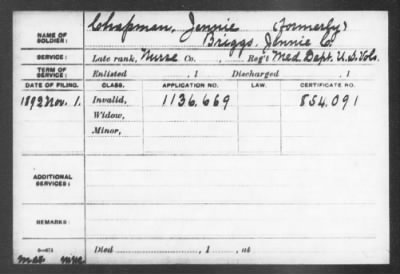 Chapman, Jennie (formerly)
NAME OF SOLDIER: Briggs, Jennie C.
SERVICE: Late rank, Nurse Co. , Reg't Med. Dept. U.S. Vols.
TERM OF SERVICE: Enlisted , 1 Discharged , 1
DATE OF FILING. CLASS. APPLICATION NO. LAW. CERTIFICATE NO.
1892 Nov. 1. Invalid, 1136.669 854.091
Widow,
Minor,
ADDITIONAL SERVICES:
REMARKS:
Died , 1 , at